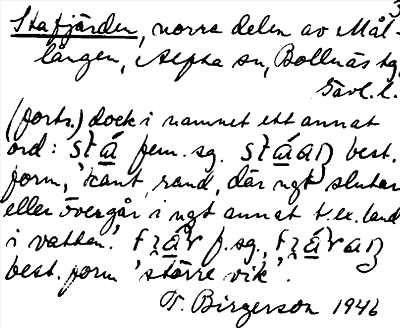 3
Stafjärden, norra delen av Mål-
lången, Alfta sn, Bollnäs tg,
Gävl. l.
(forts.) dock i namnet ett annat
ord: stá fem. sg. stáaŋ best.
form, 'kant, rand, där ngt slutar
eller övergår i ngt annat t.ex. land
i vatten.' fɀár f.sg., fɀáraŋ
best. form 'större vik'.
T. Birgerson 1946